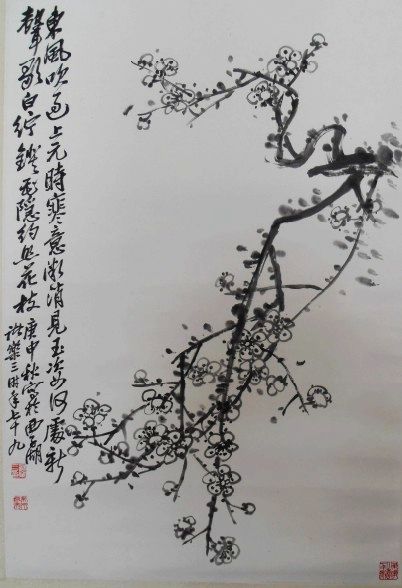 東風吹過上元時寒意漸消見玉姿何處新
聲歌白紵鐙隱約花枝
庚申秋寫於西湖
諸樂三時年七十九